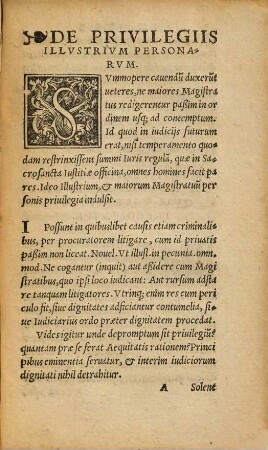 DE PRIVILEGIIS
ILLVSTRIVM PERSONA-
RVM.
SVmmopere cauendũ duxerũt
ueteres, ne maiores Magistra
tus redigerentur paßim in or
dinem usq; ad contemptum.
Id quod in iudicijs futurum
erat, nisi temperamento quo-
dam restrinxissent summi Iuris regulã, quæ in Sa-
crosancta Iustitiæ officina, omnes homines facit pa-
res. Ideo Illustrium, & maiorum Magistratuũ per
sonis priuilegia indulsit.
I Possunt in quibuslibet causis etiam criminali-
bus, per procuratorem litigare, cum id priuatis
paßim non liceat. Nouel. Vt illust. in pecunia. omn.
mod. Ne cogantur (inquit) aut aßidere cum Magi
stratibus, quo ipsi loco iudicant: Aut rursum adsta
re tanquam litigatores. Vtrinq; enim res cum peri
culo fit, siue dignitates adficiantur contumelia, si-
ue Iudiciarius ordo præter dignitatem procedat.
Vides igitur unde depromptum sit priuilegiũ &
quantam præ se ferat Aequitatis rationem? Princi
pibus eminentia seruatur, & interim iudiciorum
dignitati nihil detrahitur.
A Solent